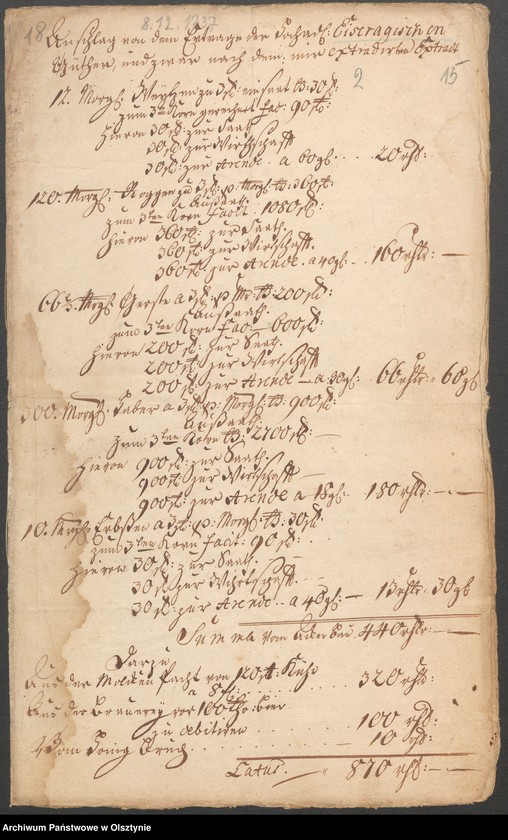 18
8.12.1737
Anschlag von dem Ertrage der Hochadl: Eiseragischen
Güther, und zwar nach dem mir extradirten Extract
2 15
12. Morg: Weytzen zu 3 einsaat 30
zum 3ten Korn gerechnet fac: 90
hiervon 30 zur Saat
30 zur Wirthschaft
30 zur Arende. a 60 gl: 20 rth:
120 Morg: Roggen zu 3 p: Morg: 360
Aussaat
zum 3ten Korn facit 1080
hiervon 360 zur Saat.
360 zur Wirthschaft.
360 zur Arende. a 40 gl. 160 rthlr: —
66⅔ Morg: Gerste a 3 p 200
Aussaat.
zum 3ten Korn fac— 600
hiervon 200 zur Saat.
200 zur Wirthschaft
200 zur Arende — a 30 gl: 66 rthlr: 60 gl
300 Morg: Haber a 3 p: Morg: 900
Aussaat:
zum 3ten Korn 2700 —
hiervon 900 zur Saat —
900 zur Wirthschaft —
900 zur Arende a 18 gl. 180 rthlr: —
10. Morg: Erbsen a 3 p: Morg: 30
zum 3ten Korn facit: 90
hiervon 30 zur Saat —
30 zur Wirthschaft —
30 zur Arende .. a 40 gl: — 13 rthlr: 30 gl
Summa vom Ackerbau 440 rthlr: —
Darzu
Aus der Molcken Pacht von 120 Kühe
a 8 320 rthl:
Aus der Brauerey vor 100 Bier
zu debitiren 100 rthl:
Vom 10 rthl:
Latus. — 870 rthl: —
Archiwum Państwowe w Olsztynie